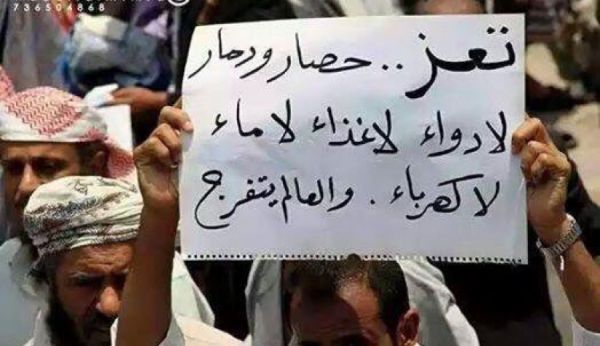 736504868
تعز .. حصار ودمار
لا دواء لا غذاء لا ماء
لا كهرباء . والعالم يتفرج